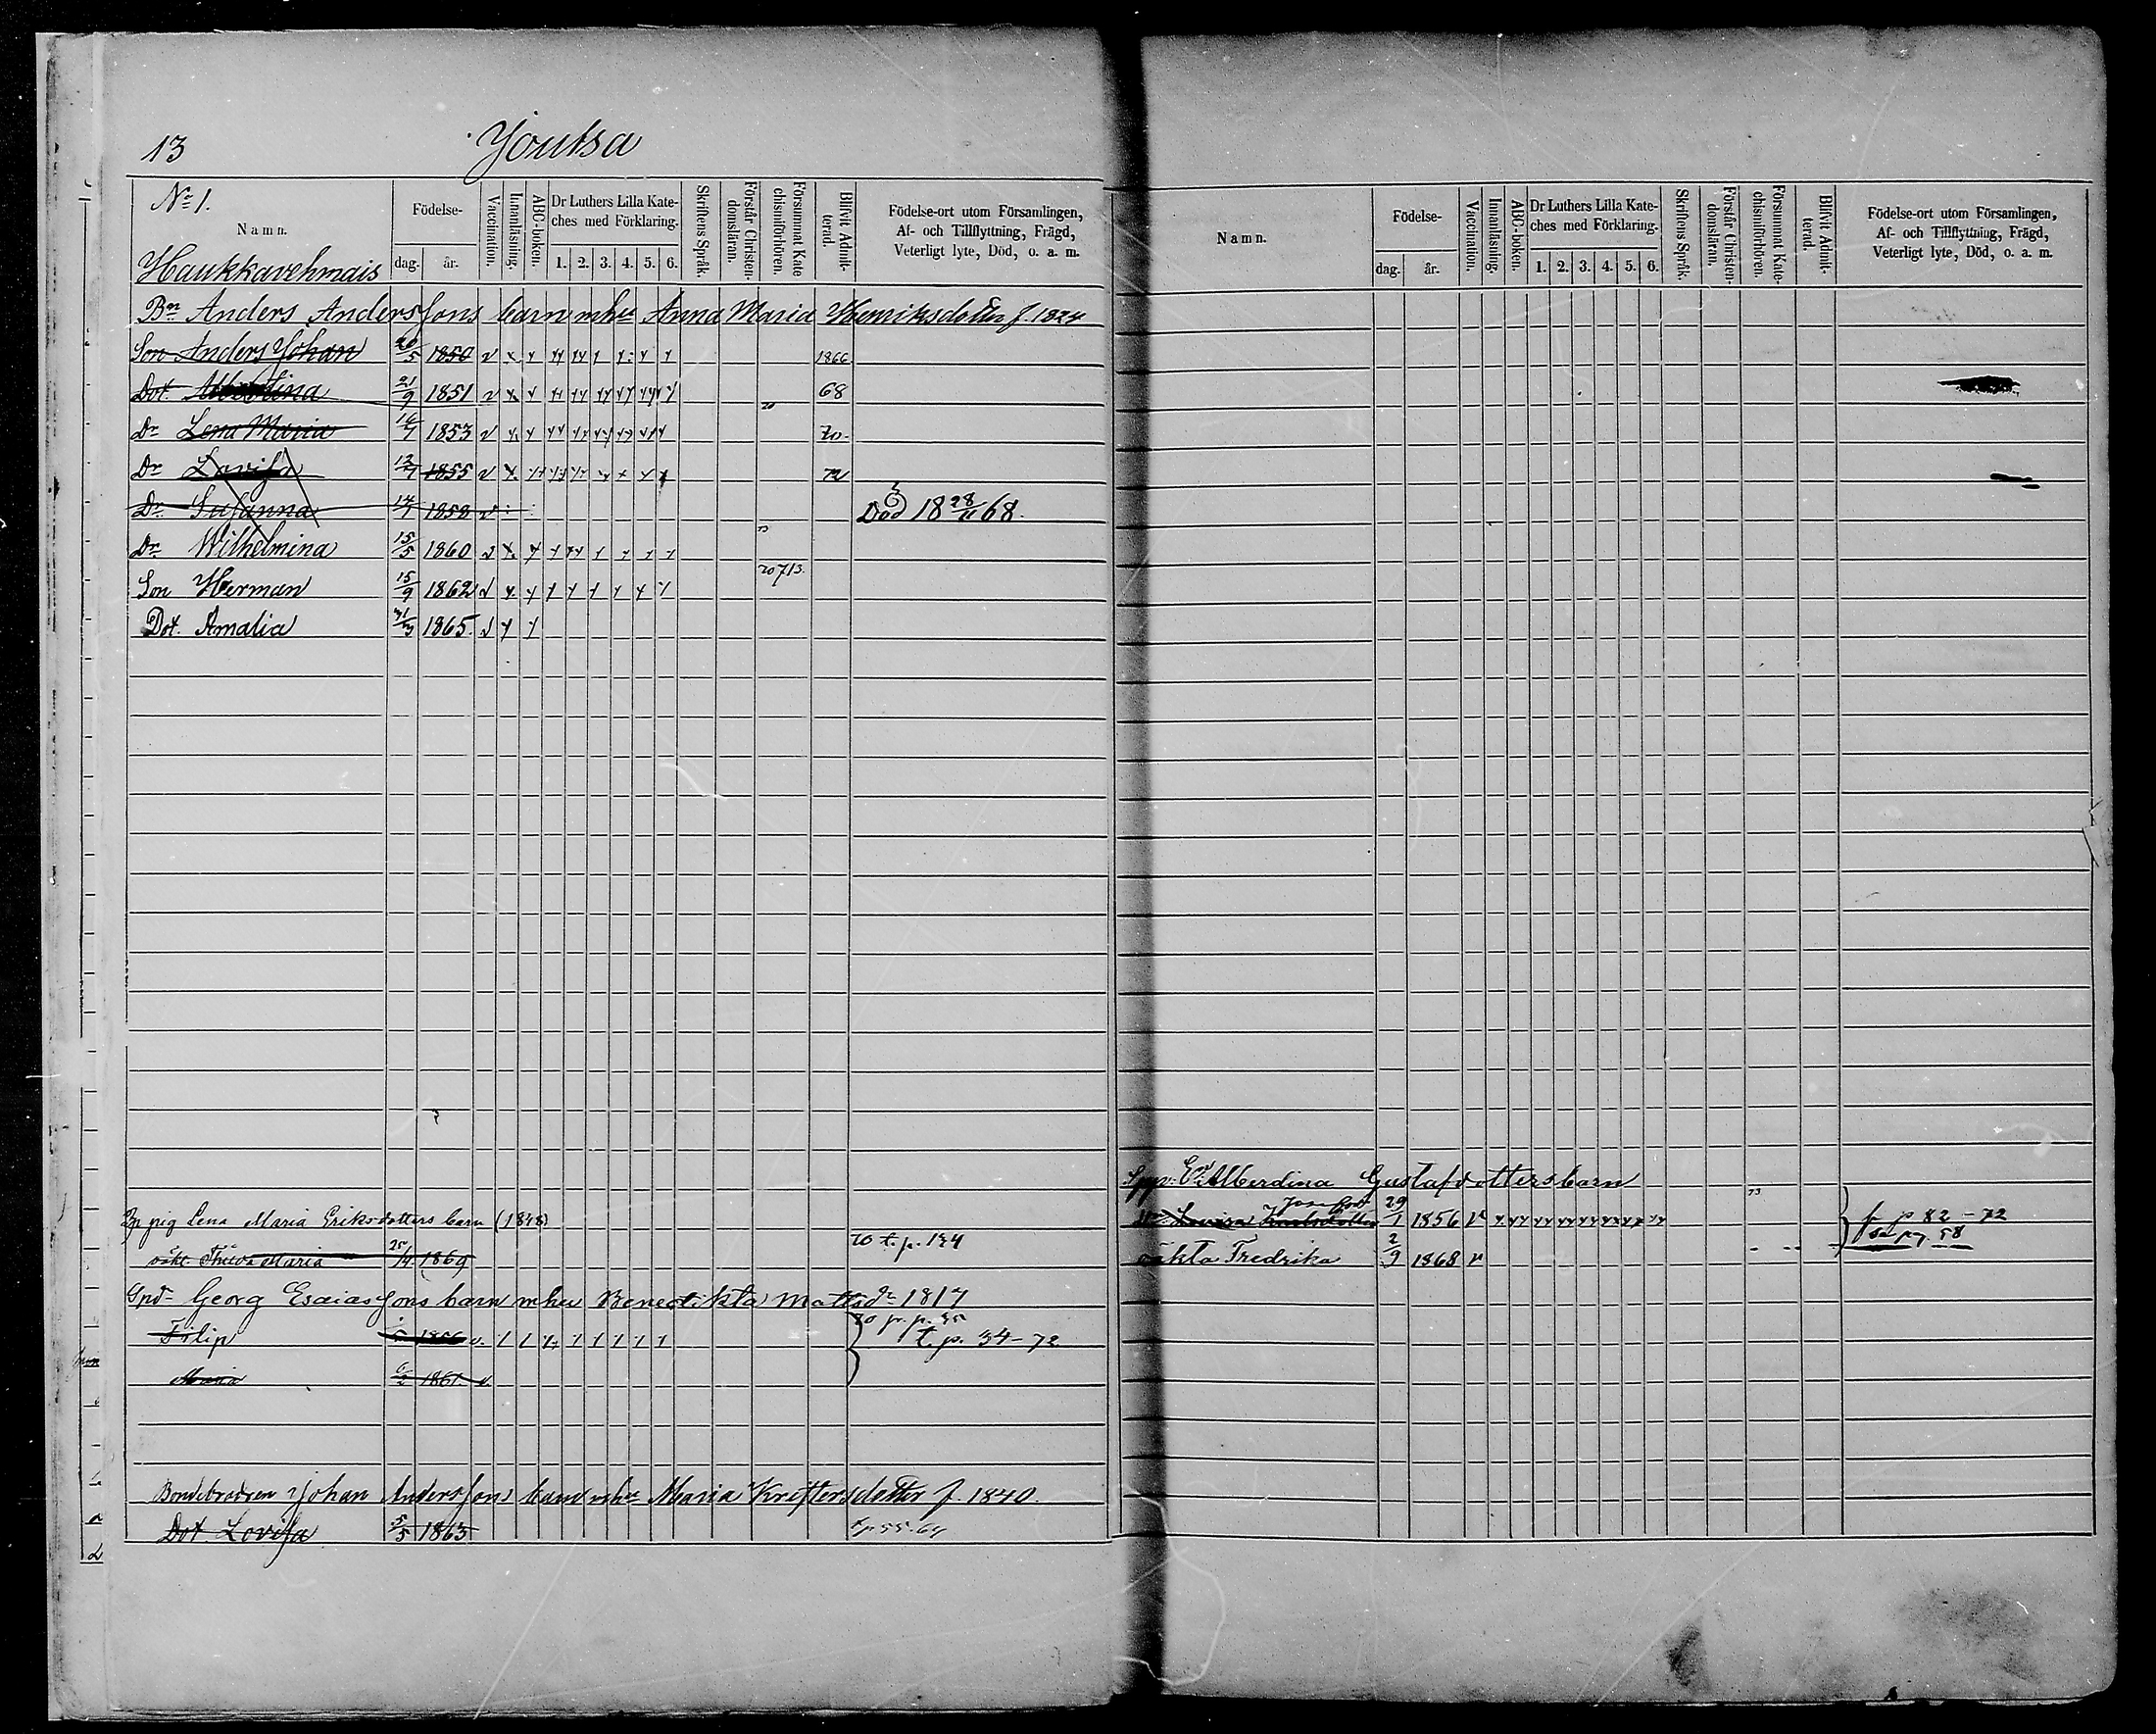 13 Joutsa
No 1.
Namn.
Födelse-
dag. år.
Vaccination.
Innanläsning.
ABC-boken.
Dr Luthers Lilla Kate-
ches med Förklaring.
1. 2. 3. 4. 5. 6.
Skriftens Språk.
Förstår Christen-
domsläran.
Försummat Kate-
chismiförhören.
Blifvit Admit-
terad.
Födelse-ort utom Församlingen,
Af- och Tillflyttning, Frägd,
Veterligt lyte, Död, o. a. m.
Haukkavehmais
Bn Anders Anderssons barn mhu Anna Maria Henriksdotter f. 1824
Son Anders Johan 20/5 1850 v 1866
Dot. Albertina 21/9 1851 v 68
Dr Lena Maria 1853 v 70.
Dr Lovisa 1855 v 72
Dr Susanna 1858 v Död 18 28/11 68.
Dr Wilhelmina 15/5 1860 v
Son Herman 15/9 1862 v 70 713.
Dot. Amalia 31/3 1865. v
pig Lena Maria Eriksdotters barn (1848)
oäkt. Maria 1869 70 t. p. 134
Georg Esaiassons barn mhu Benedikta Mattsdr 1817
Filip 1856 v. t. p. 34-72
Maria 1861. v.
Bondebrodren Johan Anderssons barn mhu Maria Kristersdotter f. 1840.
Dot. Lovisa 5/5 1863 t p 55-64
Namn.
Födelse-
dag. år.
Vaccination.
Innanläsning.
ABC-boken.
Dr Luthers Lilla Kate-
ches med Förklaring.
1. 2. 3. 4. 5. 6.
Skriftens Språk.
Förstår Christen-
domsläran.
Försummat Kate-
chismiförhören.
Blifvit Admit-
terad.
Födelse-ort utom Församlingen,
Af- och Tillflyttning, Frägd,
Veterligt lyte, Död, o. a. m.
Alberdina Gustafdottersbarn
Lovisa 29/1 1856 v 73 p 82-72
oäkta Fredrika 2/9 1868 v 58